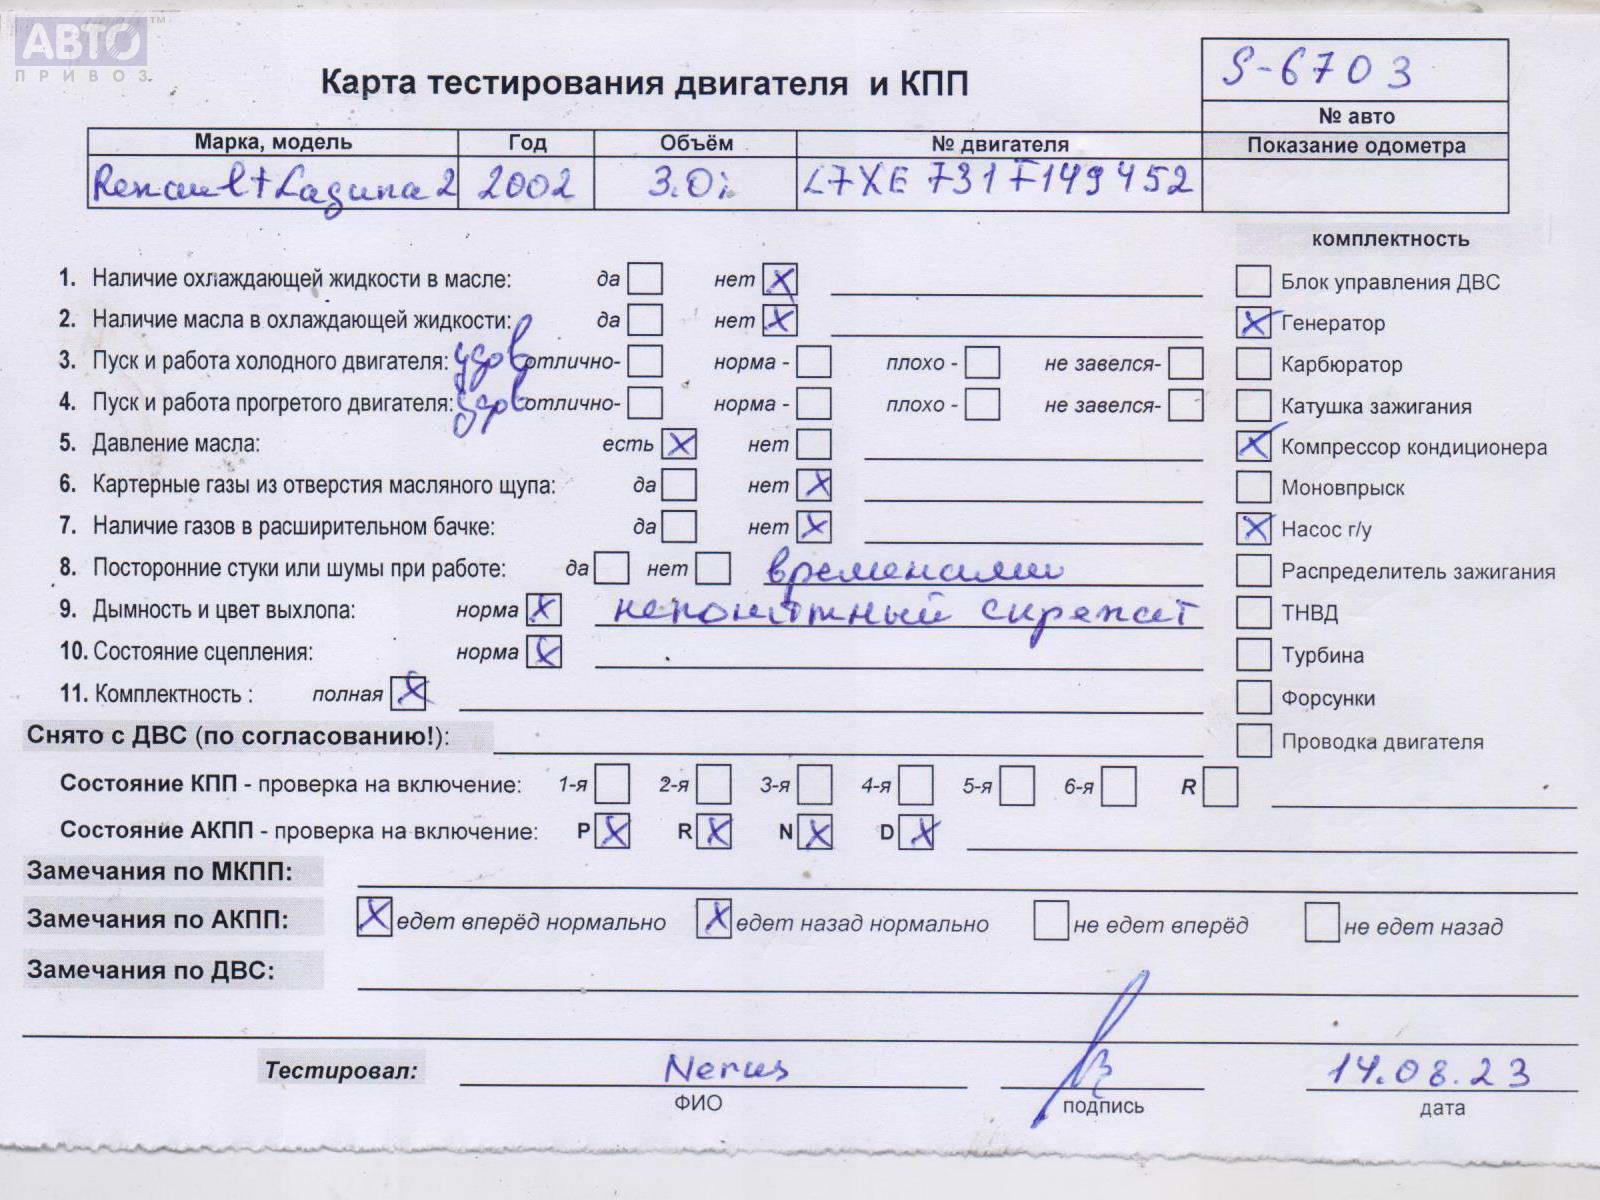 АВТО™
ПРИВОЗ
Карта тестирования двигателя и КПП
S-6703
№ авто
Марка, модель Год Объём № двигателя Показание одометра
Renault Laguna 2 2002 3.0i L7XE 731 F149452
комплектность
1. Наличие охлаждающей жидкости в масле: да нет X
Блок управления ДВС
2. Наличие масла в охлаждающей жидкости: да нет X
X Генератор
3. Пуск и работа холодного двигателя: удов отлично- норма - плохо - не завелся-
Карбюратор
4. Пуск и работа прогретого двигателя: удов отлично- норма - плохо - не завелся-
Катушка зажигания
5. Давление масла: есть X нет
X Компрессор кондиционера
6. Картерные газы из отверстия масляного щупа: да нет X
Моновпрыск
7. Наличие газов в расширительном бачке: да нет X
X Насос г/у
8. Посторонние стуки или шумы при работе: да нет временами
Распределитель зажигания
9. Дымность и цвет выхлопа: норма X непонятный скрежет
ТНВД
10. Состояние сцепления: норма X
Турбина
11. Комплектность : полная X
Форсунки
Снято с ДВС (по согласованию!):
Проводка двигателя
Состояние КПП - проверка на включение: 1-я 2-я 3-я 4-я 5-я 6-я R
Состояние АКПП - проверка на включение: P X R X N X D X
Замечания по МКПП:
Замечания по АКПП: X едет вперёд нормально X едет назад нормально не едет вперёд не едет назад
Замечания по ДВС:
Тестировал: 14.08.23
ФИО подпись дата